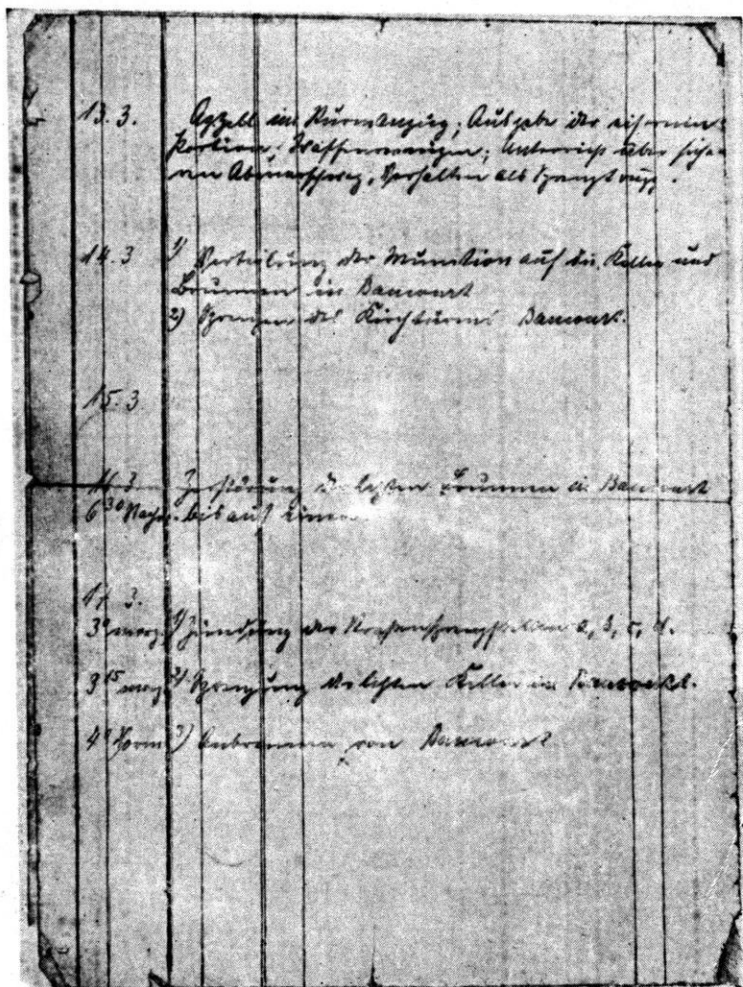 13. 3. Appell im Sturmanzug; Ausgabe der eisernen
Portion. Waffenreinigen; Unterricht über
Verhalten als Sprengtrupp.
14. 3 1) Verteilung der Munition auf die Keller und
Brunnen in Bancourt
2) Sprengen des Kirchturms Bancourt.
15. 3
16. 3 Zerstörung der letzten Brunnen in Bancourt
6 30 Nachm. bis auf einen
17 3.
3 0 morg. 1) Zündung der Straßensprengstellen a, b, c, d.
3 15 morg 2) Sprengung der letzten Keller in Bancourt.
4 0 Vorm 3) Anbrennen von Bancourt